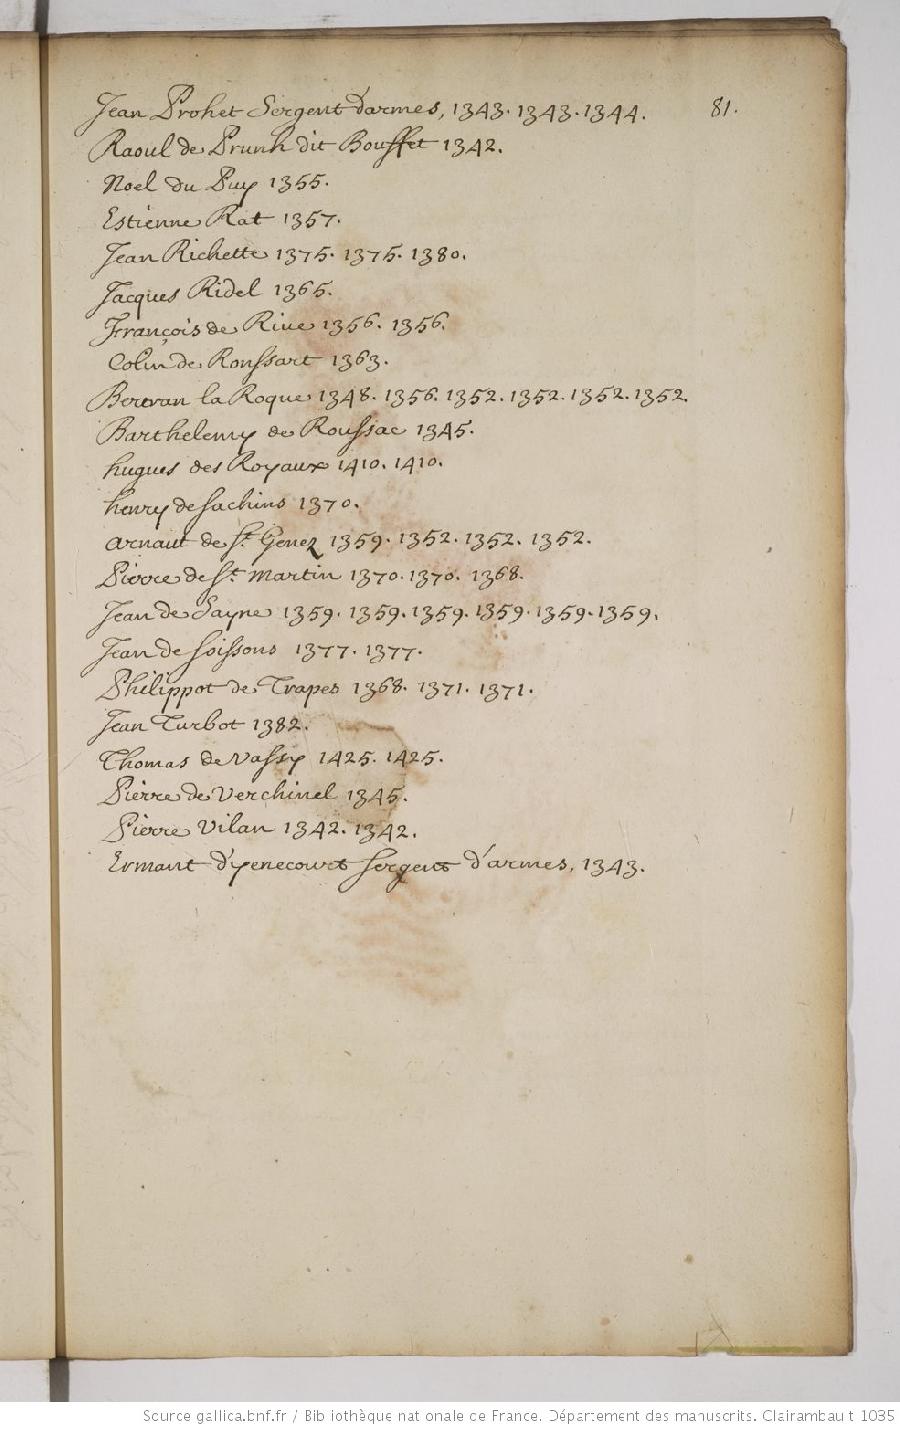 Jean Prohet Sergent d'armes, 1343. 1343. 1344. 81.
Raoul de Prunh dit Bouffet 1342.
Noel du Puy 1355.
Estienne Rat 1357.
Jean Richette 1375. 1375. 1380.
Jacques Ridel 1365.
François de Rive 1356. 1356.
Colin de Ronssart 1363.
Bertran la Roque 1348. 1356. 1352. 1352. 1352. 1352.
Barthelemy de Roussac 1345.
hugues des Royaux 1410. 1410.
henry de sachins 1370.
arnaut de St. Genez 1359. 1352. 1352. 1352.
Pierre de St. Martin 1370. 1370. 1368.
Jean de Sayne 1359. 1359. 1359. 1359. 1359. 1359.
Jean de soissons 1377. 1377.
Philippot de Trapes 1368. 1371. 1371.
Jean Turbot 1382.
Thomas de Vassy 1425. 1425.
Pierre de Verchinel 1345.
Pierre Vilan 1342. 1342.
Ermant d'yenecourt sergent d'armes, 1343.
Source gallica.bnf.fr / Bibliothèque nationale de France. Département des manuscrits. Clairambault 1035